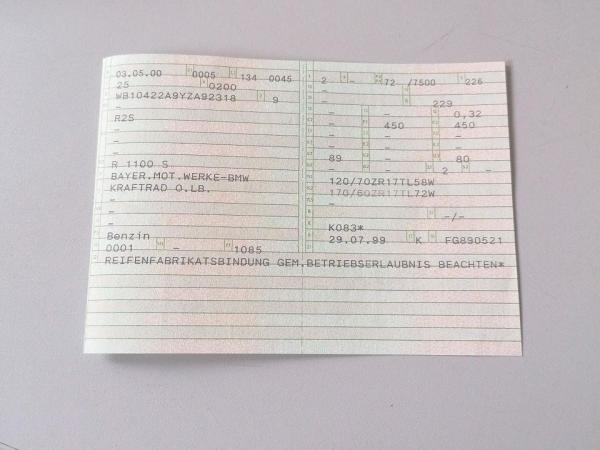 03.05.00 0005 134 0045
25 0200
WB10422A9YZA92318 9
-
R2S
-
-
-
R 1100 S
BAYER.MOT.WERKE=BMW
KRAFTRAD O.LB.
-
-
-
Benzin
0001 - 1085
2 - 72 /7500 226
-
- 229
- - 0,32
- 450 450
- - -
- - -
89 - 80
- - 2 -
120/70ZR17TL58W
170/60ZR17TL72W
-
- -/-
K083*
29.07.99 K FG890521
REIFENFABRIKATSBINDUNG GEM.BETRIEBSERLAUBNIS BEACHTEN*